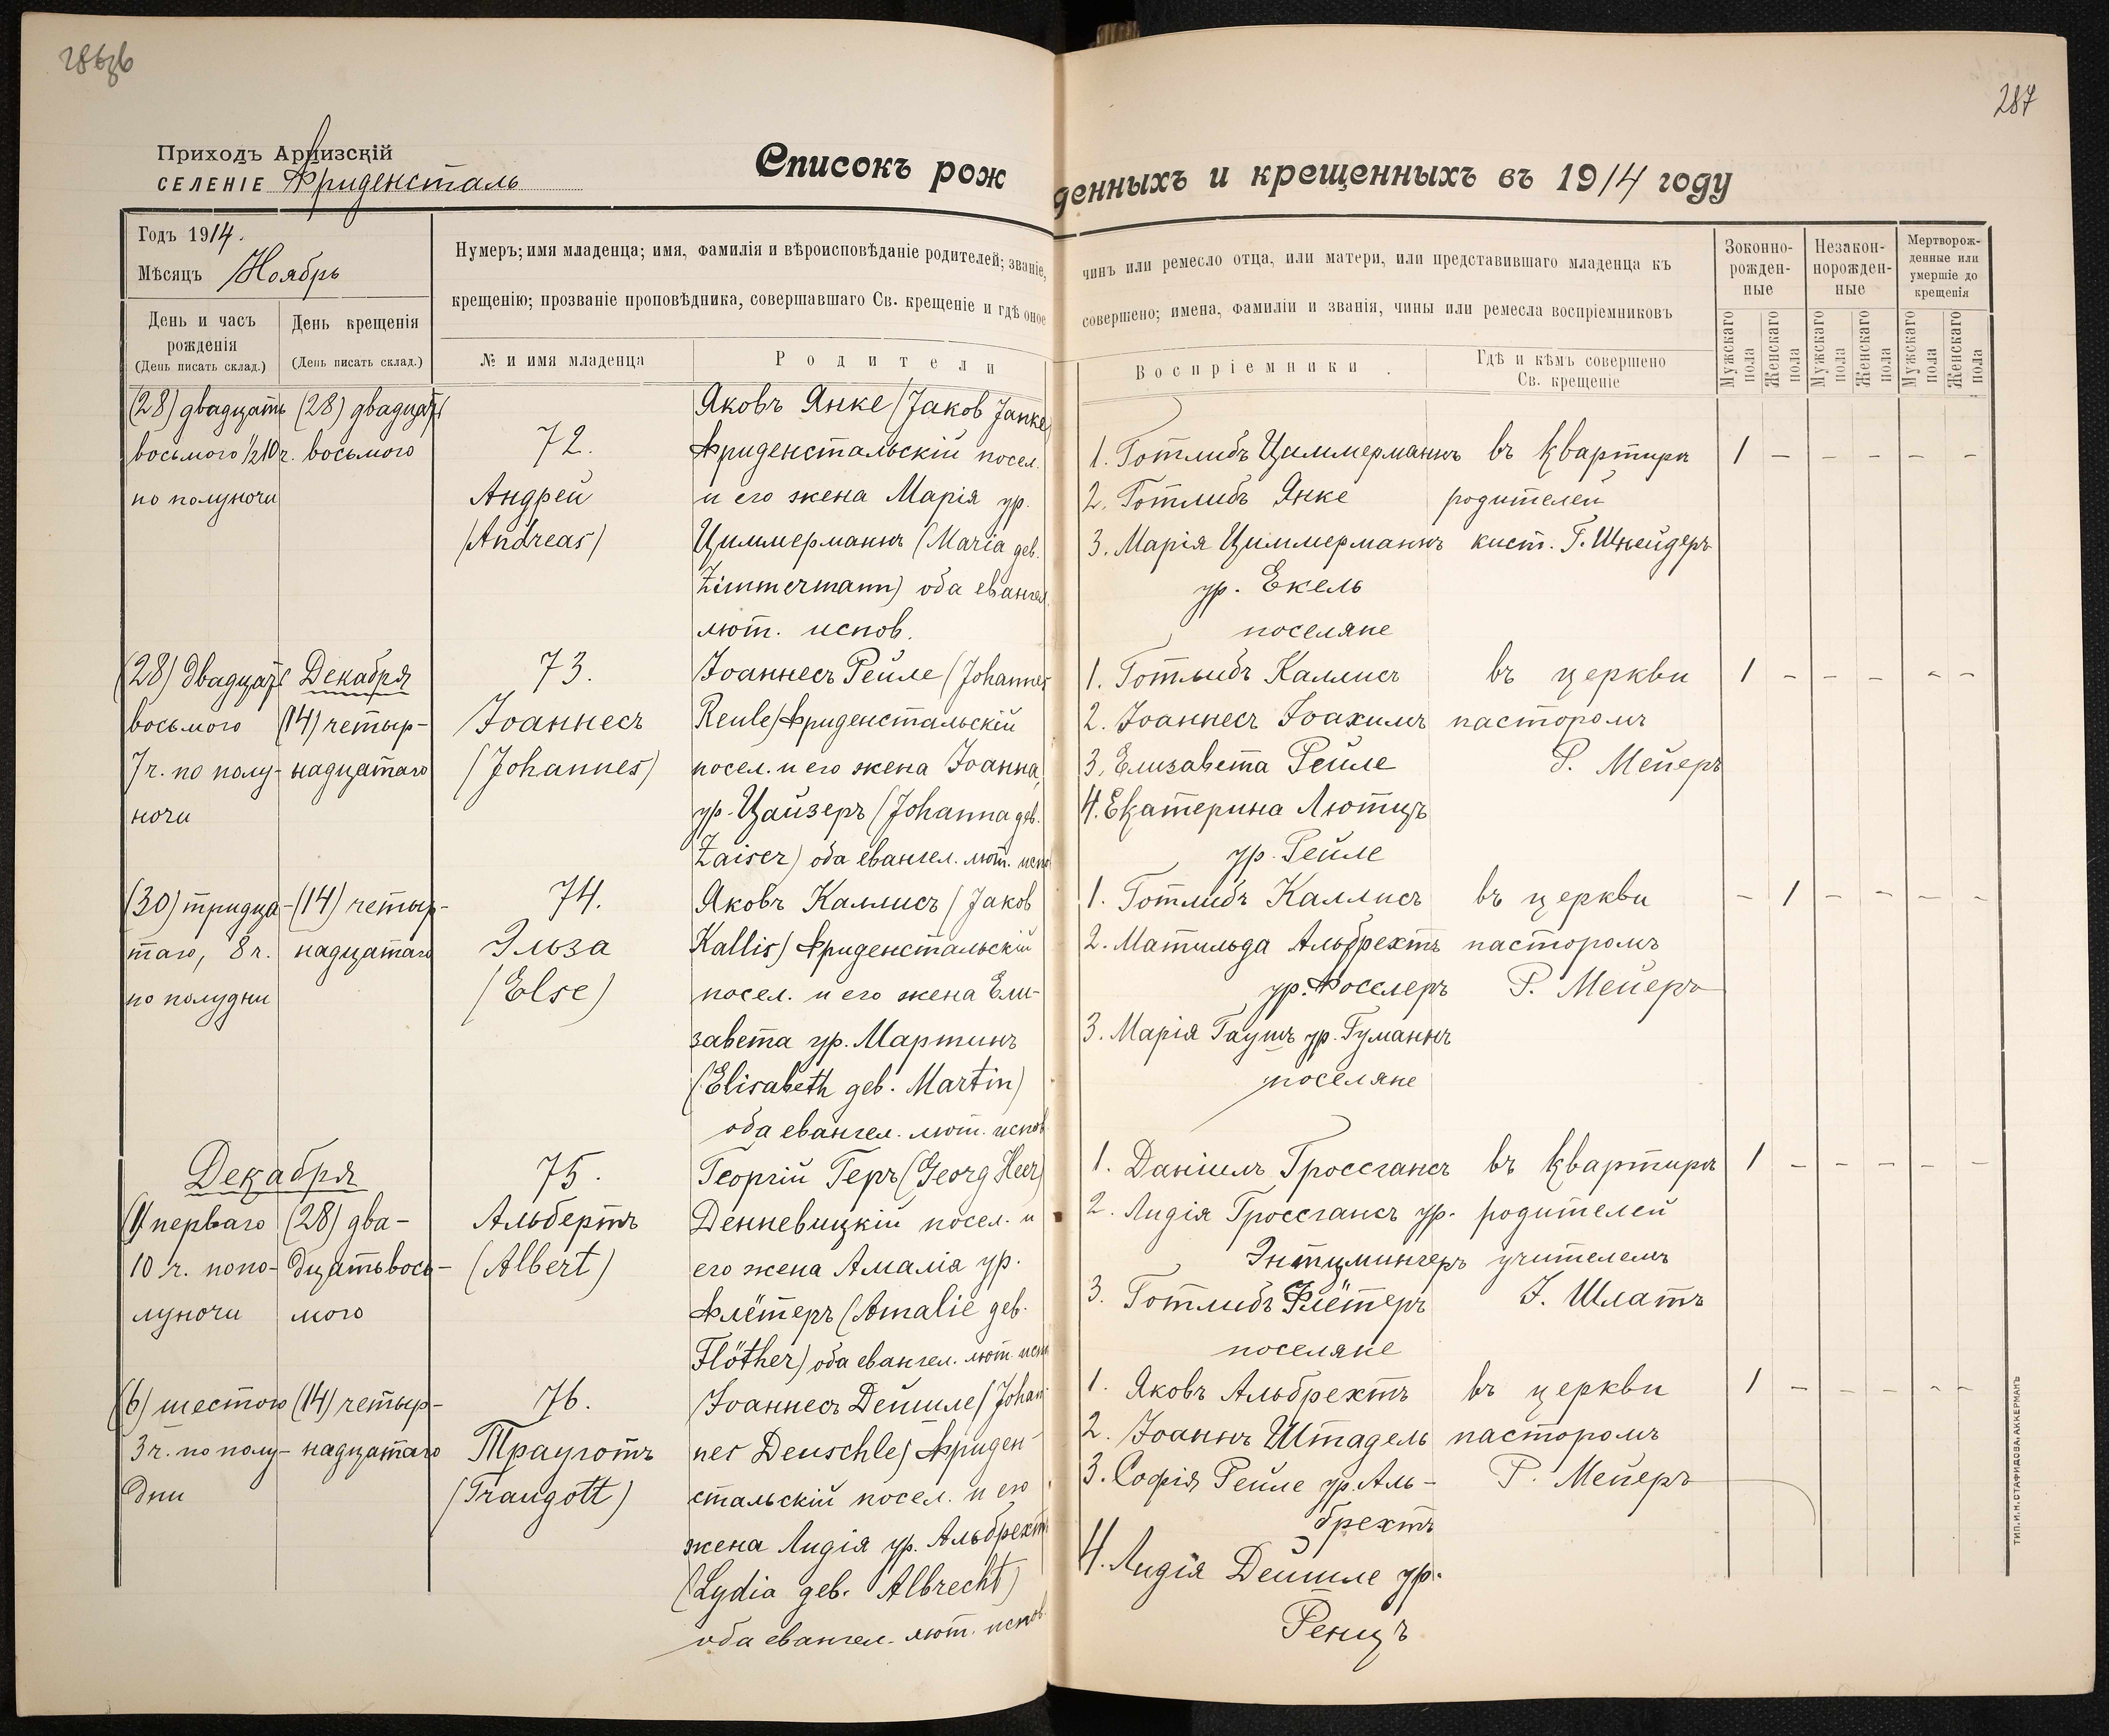 287
Приходъ Арцизскій
СЕЛЕНІЕ Фриденсталь
Списокъ рожденныхъ и крещенныхъ въ 1914 году
Годъ 1914.
Мѣсяцъ Ноябрь
День и часъ
рожденія
(День писать склад.)
День крещенія
(День писать склад.)
Нумеръ; имя младенца; имя, фамилія и вѣроисповѣданіе родителей; званіе,
чинъ или ремесло отца, или матери, или представившаго младенца къ
крещенію; прозваніе проповѣдника, совершавшаго Св. крещеніе и гдѣ оное
совершено; имена, фамиліи и званія, чины или ремесла воспріемниковъ
№ и имя младенца
Родители
Воспріемники.
Гдѣ и кѣмъ совершено
Св. крещеніе
Зоконно-
рожден-
ные
Незакон-
норожден-
ные
Мертворож-
денные или
умершіе до
крещенія
Мужскаго пола
Женскаго пола
Мужскаго пола
Женскаго пола
Мужскаго пола
Женскаго пола
(28) двадцать
восьмого ½10 ч.
по полуночи
(28) двадцать
восьмого
72.
Андрей
(Andreas)
Яковъ Янке (Jakob Janke)
Фриденстальскій посел.
и его жена Марія ур.
Циммерманнъ (Maria geb.
Zimmermann) оба евангел.
лют. испов.
1. Готлибъ Циммерманнъ
2. Готлибъ Янке
3. Марія Циммерманнъ
ур. Екель
поселяне
въ квартирѣ
родителей
кист. Г. Шнейдеръ
1 – – – – –
(28) двадцать
восьмого
7 ч. по полу-
ночи
Декабря
(14) четыр-
надцатаго
73.
Іоаннесъ
(Johannes)
Іоаннесъ Рейле (Johannes
Reule) Фриденстальскій
посел. и его жена Іоанна,
ур. Цайзеръ (Johanna geb.
Zaiser) оба евангел. лют. испо
1. Готлибъ Каллисъ
2. Іоаннесъ Іоахимъ
3. Елизавета Рейле
4. Екатерина Лютцъ
ур. Рейле
въ церкви
пасторомъ
Р. Мейеръ
1 – – – – –
(30) тридца-
таго, 8 ч.
по полудни
(14) четыр-
надцатаго
74.
Эльза
(Else)
Яковъ Каллисъ (Jakob
Kallis) Фриденстальскій
посел. и его жена Ели-
завета ур. Мартинъ
(Elisabeth geb. Martin)
оба евангел. лют. испов
1. Готлибъ Каллисъ
2. Матильда Альбрехтъ
ур. Фосслеръ
3. Марія Гаушъ ур. Гуманнъ
поселяне
въ церкви
пасторомъ
Р. Мейеръ
– 1 – – – –
Декабря
(1) перваго
10 ч. попо-
луночи
(28) два-
дцатьвось-
мого
75.
Альбертъ
(Albert)
Георгій Геръ (Georg Heer)
Денневицкій посел. и
его жена Амалія ур.
Флётеръ (Amalie geb.
Flöther) оба евангел. лют. испо
1. Даніилъ Гроссгансъ
2. Лидія Гроссгансъ ур.
Энтцмингеръ
3. Готлибъ Флётеръ
поселяне
въ квартирѣ
родителей
учителемъ
І. Шлатъ
1 – – – – –
(6) шестого
3 ч. по полу-
дни
(14) четыр-
надцатаго
76.
Трауготъ
(Traugott)
Іоаннесъ Дейшле (Johan
nes Deuschle) Фриден-
стальскій посел. и его
жена Лидія ур. Альбрехтъ
(Lydia geb. Albrecht)
оба евангел. лют. испов.
1. Яковъ Альбрехтъ
2. Іоаннъ Штадель
3. Софія Рейле ур. Аль-
брехтъ
4. Лидія Дейшле ур.
Ренцъ
въ церкви
пасторомъ
Р. Мейеръ
1 – – – – –
ТИП. И. Н. СТАФИДОВА. АККЕРМАНЪ